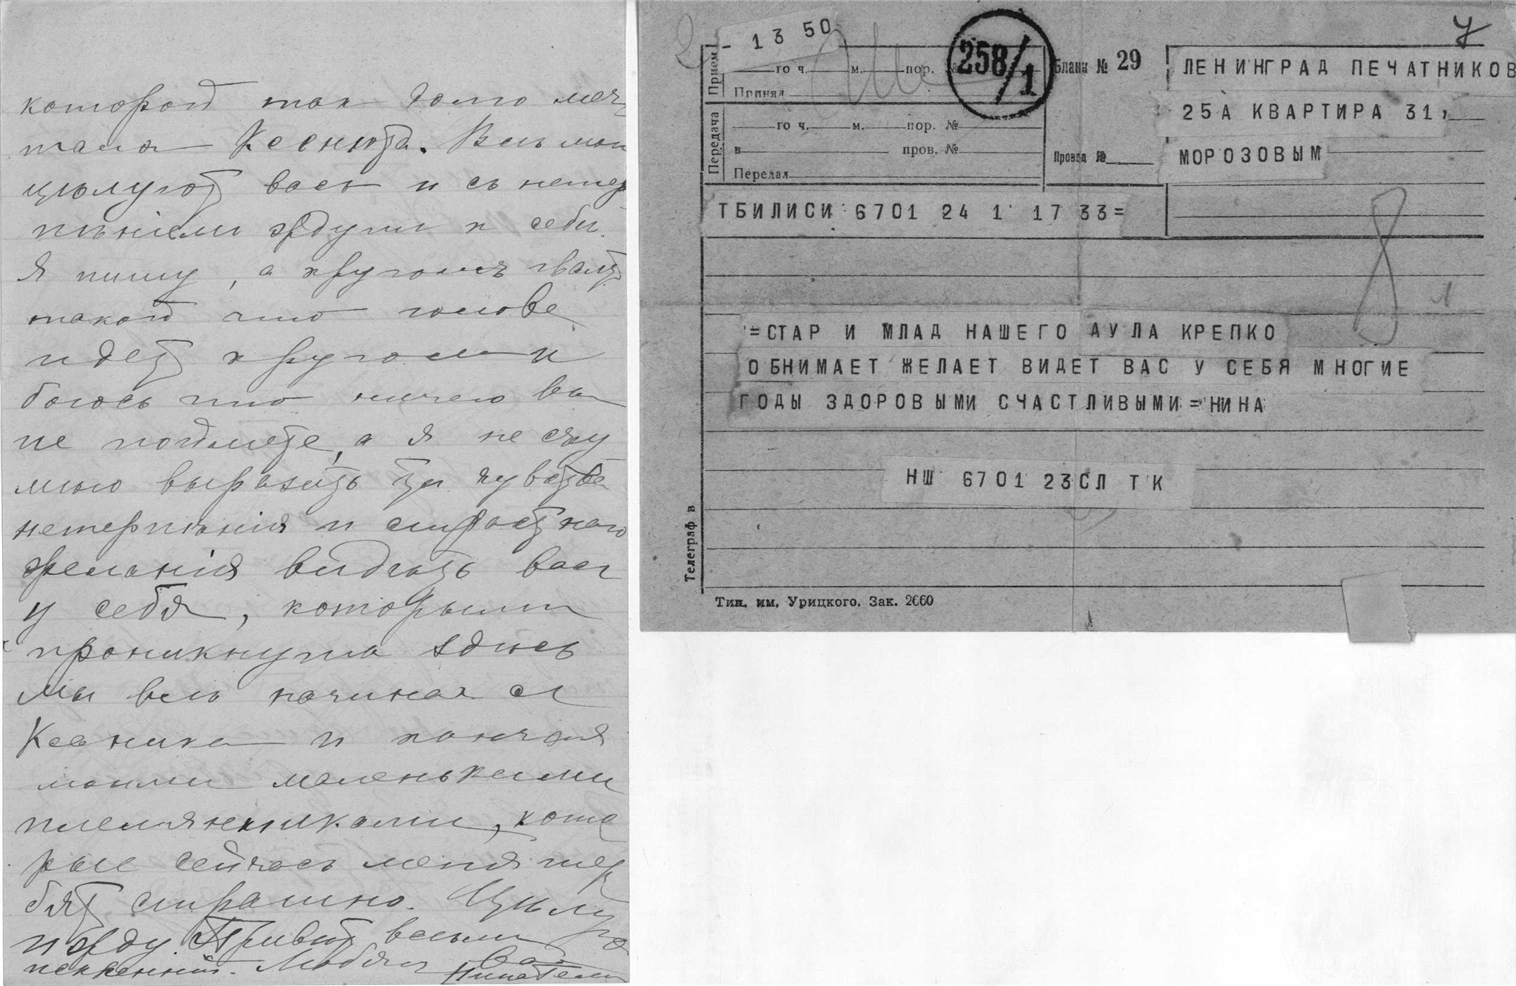 которой так долго меч
тала Ксенюта. Всѣ мы
цѣлуютъ васъ и съ нетер
пѣніемъ ждутъ къ себѣ.
Я пишу, а кругомъ гвалтъ
такой что голова
идетъ кругомъ и
боюсь что ничего вы
не поймете, а я не съу
мѣю выразить тѣ чувства
нетерпѣнія и страстнаго
желанія видѣть васъ
у себя, которыми
проникнуты здѣсь
мы всѣ начиная съ
и кончая
моими маленькими
племянниками, кото
рые сейчасъ меня тер
бятъ страшно. Цѣлую
и жду Привѣтъ всѣмъ
искренній. Любящ
- 13 50
258/1
7
Прием
го ч. м. пор. №
Принял
Передача
го ч. м. пор. №
в пров. №
Передал
Бланк № 29
Провод №
ЛЕНИНГРАД ПЕЧАТНИКОВ
25А КВАРТИРА 31,
МОРОЗОВЫМ
ТБИЛИСИ 6701 24 1 17 33=
8
=СТАР И МЛАД НАШЕГО АУЛА КРЕПКО
ОБНИМАЕТ ЖЕЛАЕТ ВИДЕТ ВАС У СЕБЯ МНОГИЕ
ГОДЫ ЗДОРОВЫМИ СЧАСТЛИВЫМИ=НИНА
НШ 6701 23СЛ ТК
Телеграф в
Тип. им. Урицкого. Зак. 2660